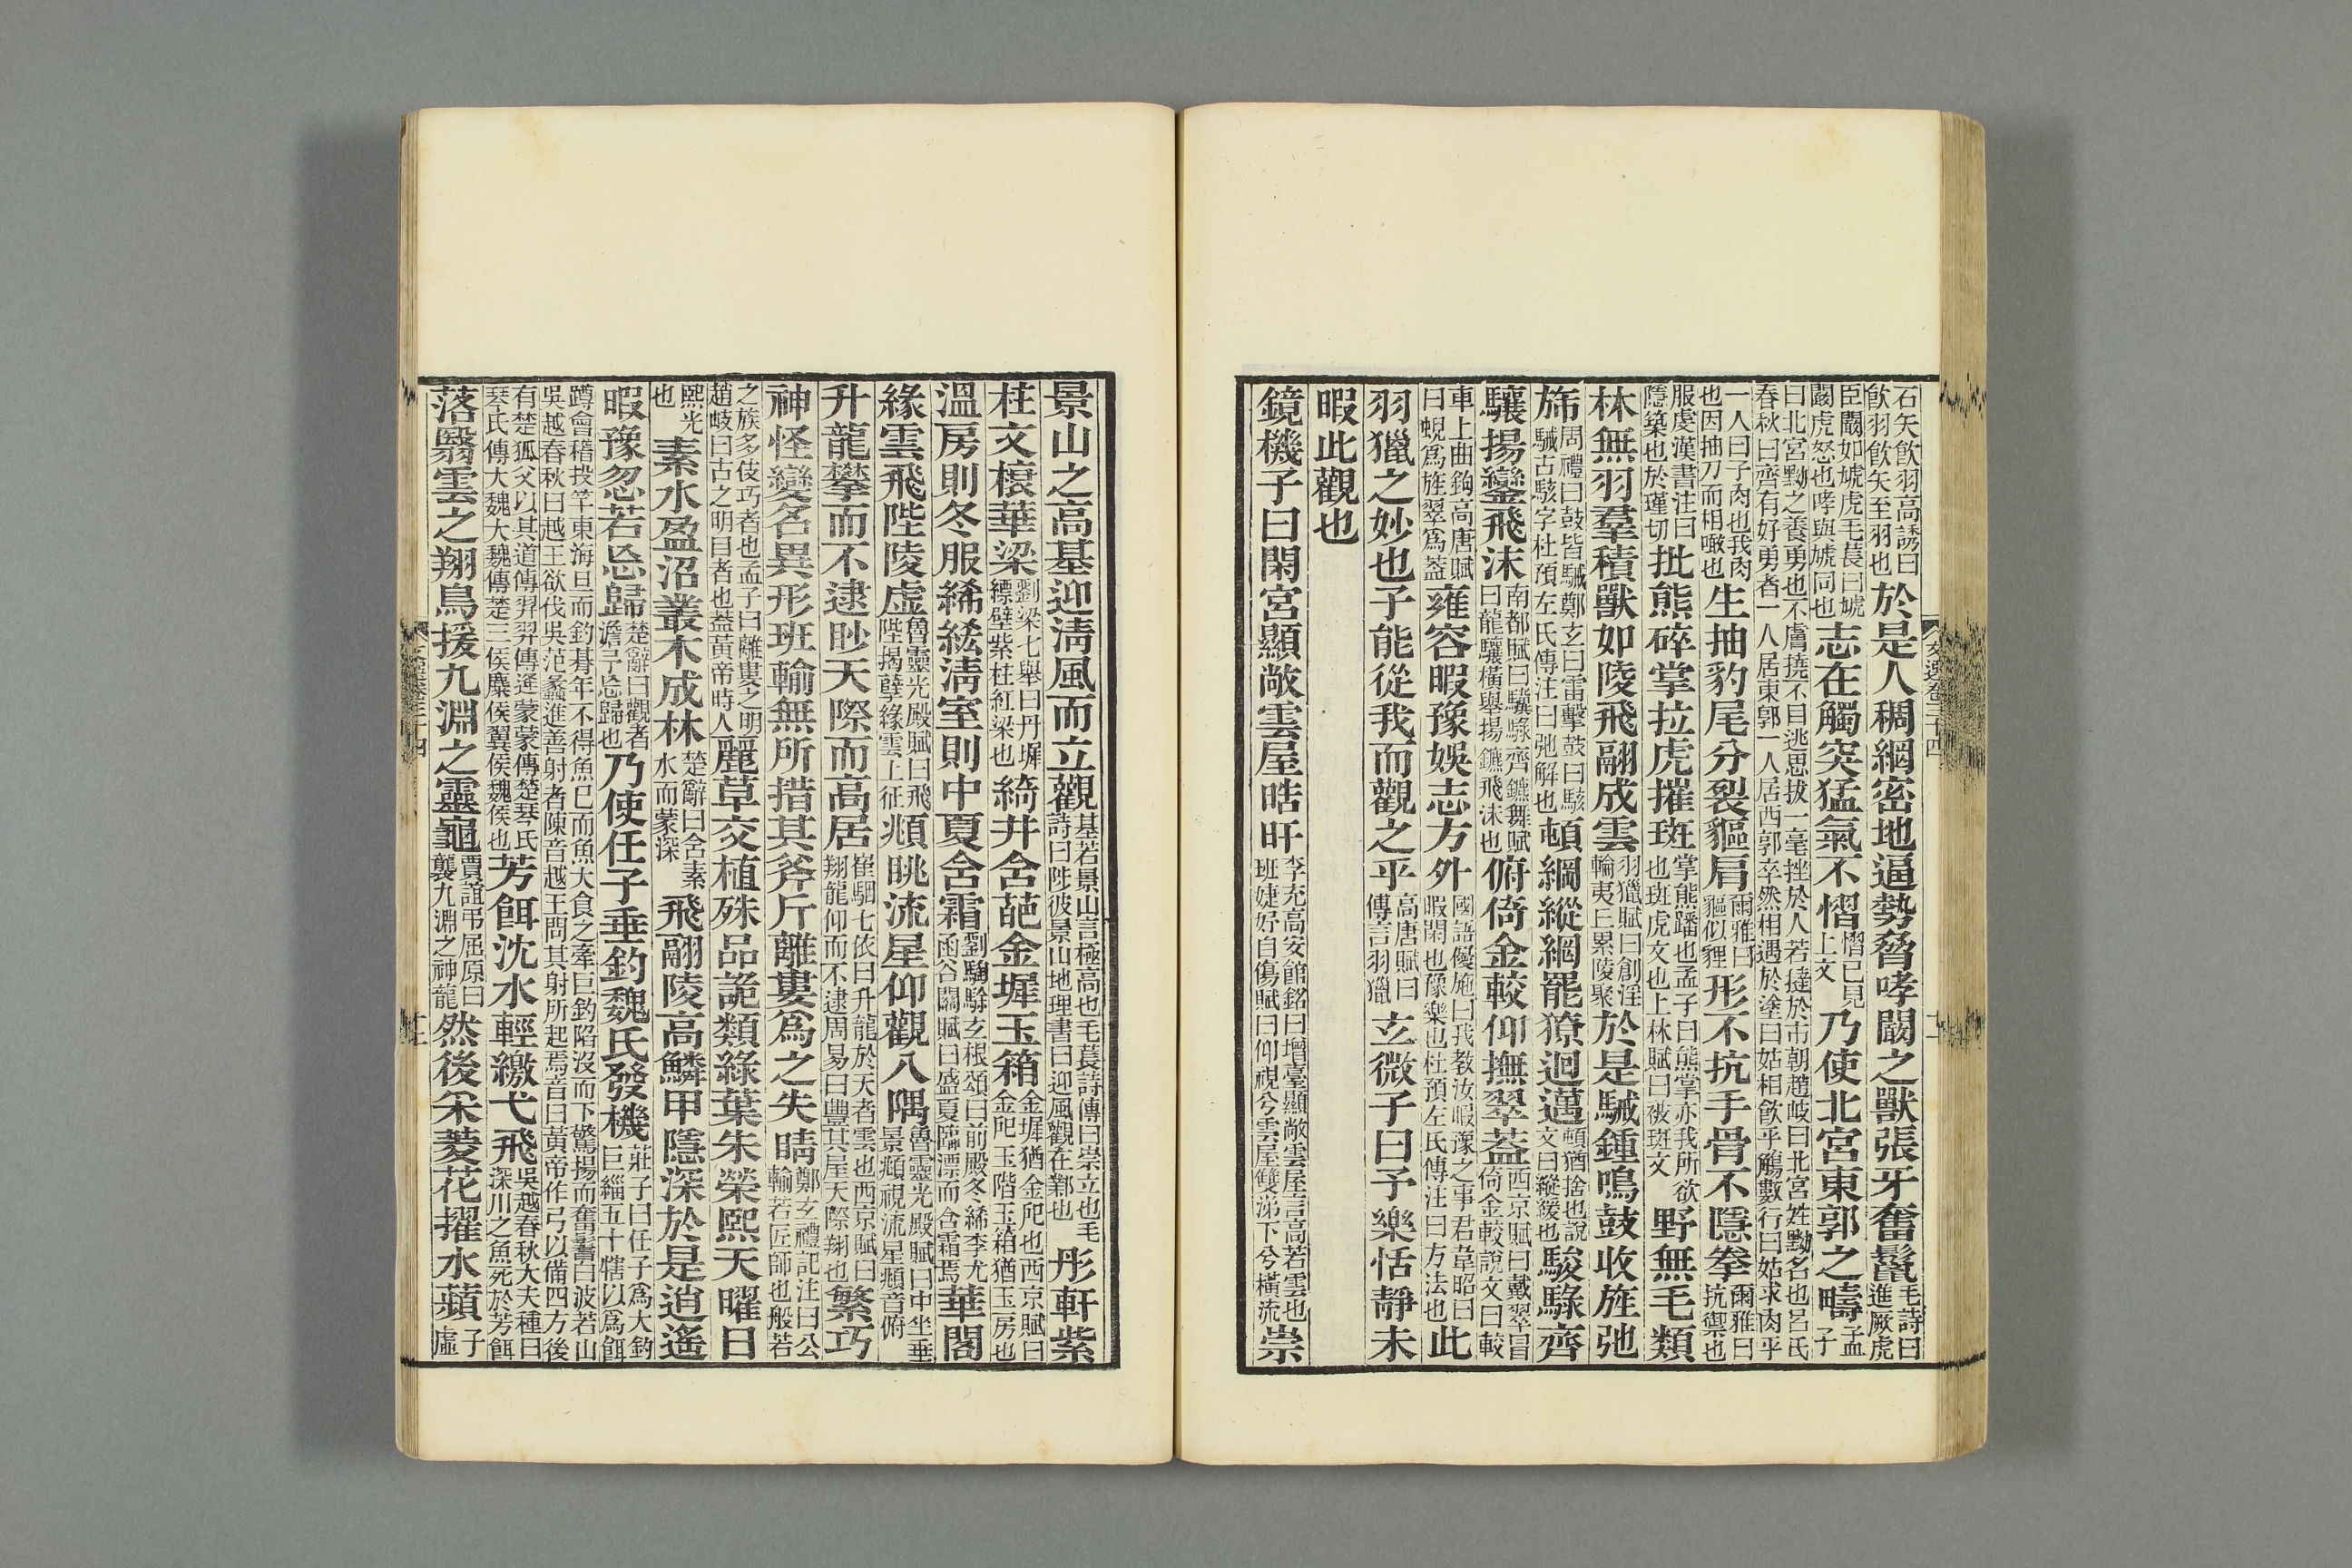 石矢飲羽高誘曰
飲羽飲矢至羽也於是人稠網密地逼勢脅哮闞之獸張牙奮鬣毛詩曰
進厥虎
臣闞如虓虎毛萇曰虓
闞虎怒也哮與虓同也志在觸突猛氣不慴慴已見
上文乃使北宮東郭之疇孟
子
曰北宮黝之養勇也不膚撓不目逃思拔一毫挫於人若撻於市朝趙岐曰北宮姓黝名也呂氏
春秋曰齊有好勇者一人居東郭一人居西郭卒然相遇於塗曰姑相飲乎觴數行曰姑求肉乎
一人曰子肉也我肉
也因抽刀而相噉也生抽豹尾分裂貙肩爾雅曰
貙似貍形不抗手骨不隱拳爾雅曰
抗禦也
服虔漢書注曰
隱築也於瑾切批熊碎掌拉虎摧斑掌熊蹯也孟子曰熊掌亦我所欲
也斑虎文也上林賦曰被斑文野無毛類
林無羽羣積獸如陵飛翮成雲羽獵賦曰創淫
輪夷丘累陵聚於是駴鍾鳴鼓收旌弛
旆周禮曰鼓皆駴鄭玄曰雷擊鼓曰駭
駴古駭字杜預左氏傳注曰弛解也頓綱縱網羆獠迴邁頓猶捨也說
文曰縱緩也駿騄齊
驤揚鑾飛沫南都賦曰驥騄齊鑣舞賦
曰龍驤橫舉揚鑣飛沫也俯倚金較仰撫翠蓋西京賦曰戴翠冒
倚金較說文曰較
車上曲鉤高唐賦
曰蜺爲旌翠爲蓋雍容暇豫娛志方外國語優施曰我教汝暇豫之事君韋昭曰
暇閑也豫樂也杜預左氏傳注曰方法也此
羽獵之妙也子能從我而觀之乎高唐賦曰
傳言羽獵玄微子曰予樂恬靜未
暇此觀也
鏡機子曰閑宮顯敞雲屋晧旰李充高安館銘曰增臺顯敞雲屋言高若雲也
班婕妤自傷賦曰仰視兮雲屋雙涕下兮橫流崇
景山之高基迎淸風而立觀基若景山言極高也毛萇詩傳曰崇立也毛
詩曰陟彼景山地理書曰迎風觀在鄴也彤軒紫
柱文榱華梁劉梁七舉曰丹墀
縹壁紫柱紅梁也綺井含葩金墀玉箱金墀猶金戺也西京賦曰
金戺玉階玉箱猶玉房也
溫房則冬服絺綌淸室則中夏含霜劉騊駼玄根頌曰前殿冬絺李尤
函谷關賦曰盛夏臨漂而含霜焉華閣
緣雲飛陛陵虛魯靈光殿賦曰飛
陛揭孽緣雲上征頫眺流星仰觀八隅魯靈光殿賦曰中坐垂
景頫視流星頫音俯
升龍攀而不逮眇天際而高居崔駰七依曰升龍於天者雲也西京賦曰
翔龍仰而不逮周易曰豐其屋天際翔也繁巧
神怪變名異形班輸無所措其斧斤離婁爲之失睛鄭玄禮記注曰公
輸若匠師也般若
之族多伎巧者也孟子曰離婁之明
趙岐曰古之明目者也蓋黃帝時人麗草交植殊品詭類綠葉朱榮熙天曜日
熙光
也素水盈沼叢木成林楚辭曰含素
水而蒙深飛翮陵高鱗甲隱深於是逍遙
暇豫忽若忘歸楚辭曰觀者
澹兮忘歸也乃使任子垂釣魏氏發機莊子曰任子爲大釣
巨緇五十犗以爲餌
蹲會稽投竿東海旦而釣朞年不得魚已而魚大食之牽巨釣陷沒而下驚揚而奮鬐白波若山
吳越春秋曰越王欲伐吳范蠡進善射者陳音越王問其射所起焉音曰黃帝作弓以備四方後
有楚狐父以其道傳羿羿傳逄蒙蒙傳楚琴氏
琴氏傳大魏大魏傳楚三侯麋侯翼侯魏侯也芳餌沈水輕繳弋飛吳越春秋大夫種曰
深川之魚死於芳餌
落翳雲之翔鳥援九淵之靈龜賈誼弔屈原曰
襲九淵之神龍然後采菱花擢水蘋子
虛
文選卷三十四